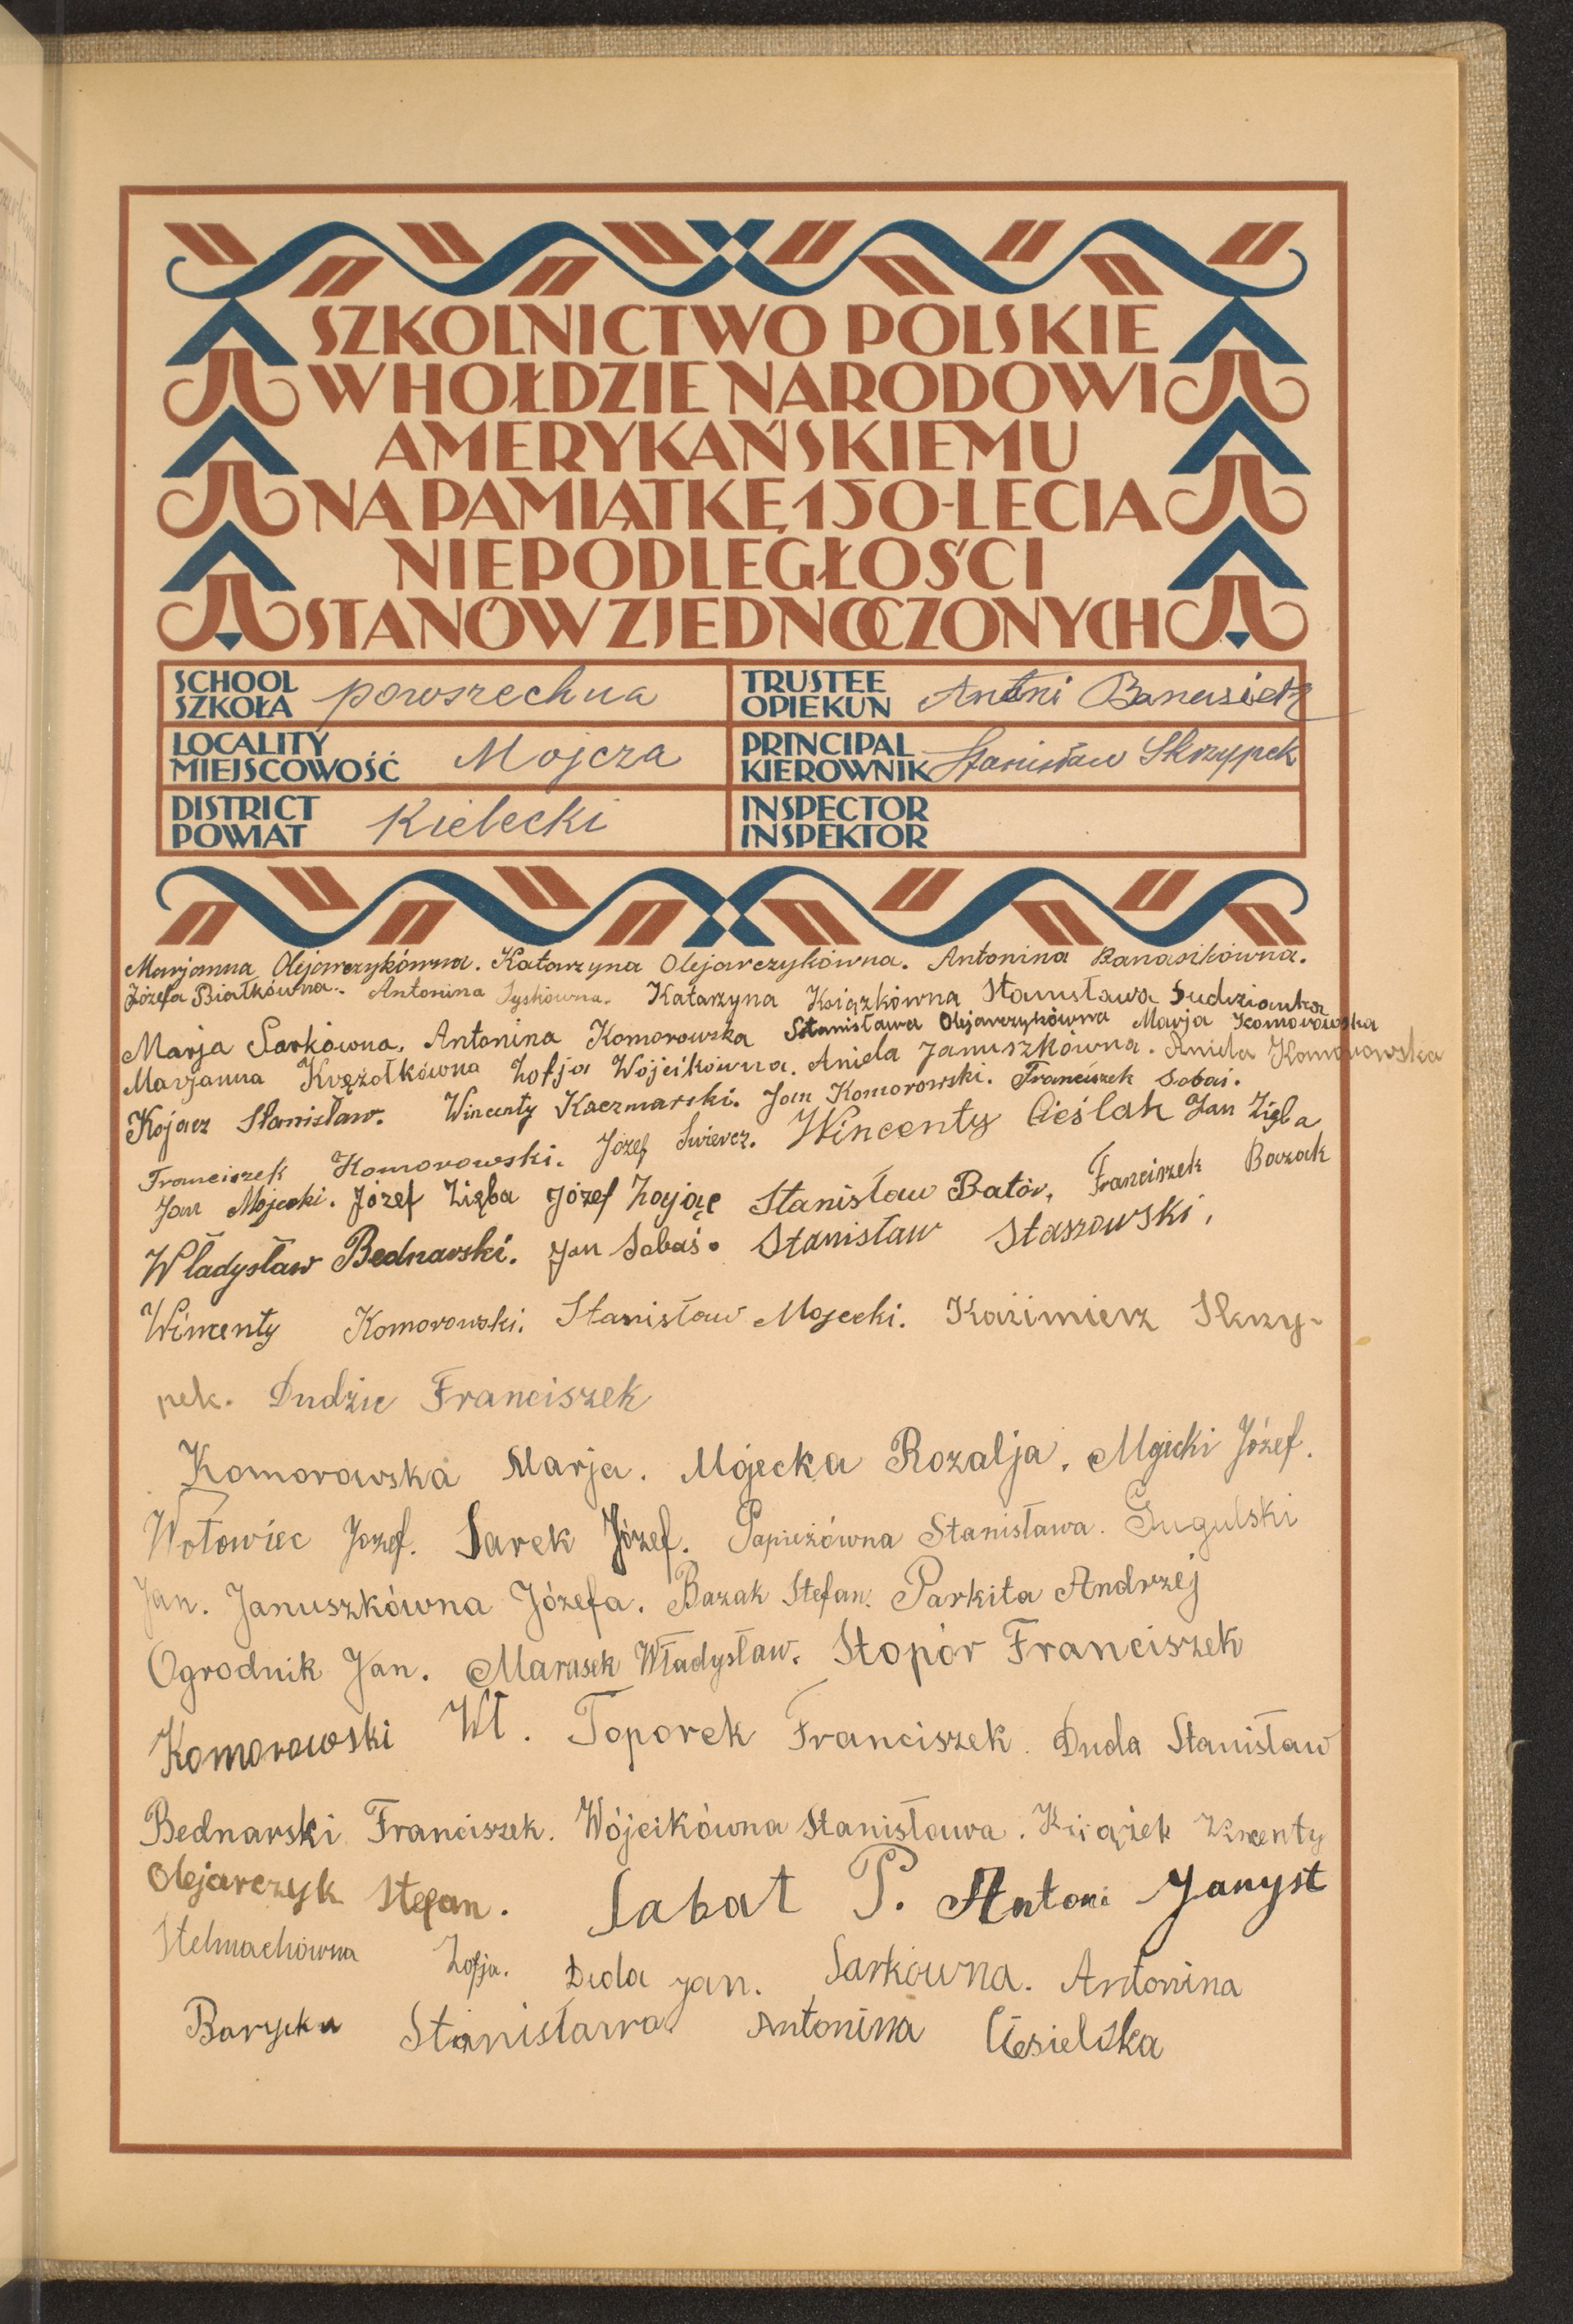 SZKOLNICTWO POLSKIE
W HOŁDZIE NARODOWI
AMERYKAŃSKIEMU
NA PAMIĄTKĘ 150-LECIA
NIEPODLEGŁOŚCI
STANÓW ZJEDNOCZONYCH
SCHOOL SZKOŁA powszechna
TRUSTEE OPIEKUN Antoni Banasiek
LOCALITY MIEJSCOWOŚĆ Mojcza
PRINCIPAL KIEROWNIK Stanisław Skrzypek
DISTRICT POWIAT Kielecki
INSPECTOR INSPEKTOR
Marjanna Olejarczykówna. Katarzyna Olejarczykówna. Antonina Banasikówna.
Józefa Białkówna. Antonina Syskówna. Katarzyna Książkówna Stanisława Dudzianka
Marja Sarkówna, Antonina Komorowska Stanisława Olejarczykówna Marja Komorowska
Marjanna Krężołkówna Zofja Wójcikówna. Aniela Januszkówna. Aniela Komorowska
Kojacz Stanisław. Wincenty Kaczmarski. Jan Komorowski. Franciszek Sabaś.
Franciszek Komorowski. Józef Świercz. Wincenty Cieślak Jan Zięba
Jan Mojecki. Józef Zięba Józef Zając Stanisław Bator, Franciszek Bazak
Władysław Bednarski. Jan Sabaś. Stanisław Staszowski,
Wincenty Komorowski. Stanisław Mojecki. Kazimierz Skrzy-
pek. Dudzic Franciszek
Komorowska Marja. Mójecka Rozalja. Mojecki Józef.
Wołowiec Jozef. Sarek Józef. Papieżówna Stanisława. Gugulski
Jan. Januszkówna Józefa. Bazak Stefan. Parkita Andrzej
Ogrodnik Jan. Marasek Władysław. Stopór Franciszek
Komorowski Wł. Toporek Franciszek. Duda Stanisław
Bednarski Franciszek. Wójcikówna Stanisława. Książek Wincenty
Olejarczyk Stefan. Sabat P. Antoni Janyst
Stelmachówna Zofja. Duda Jan. Sarkówna. Antonina
Barycka Stanisława Antonina Ciesielska